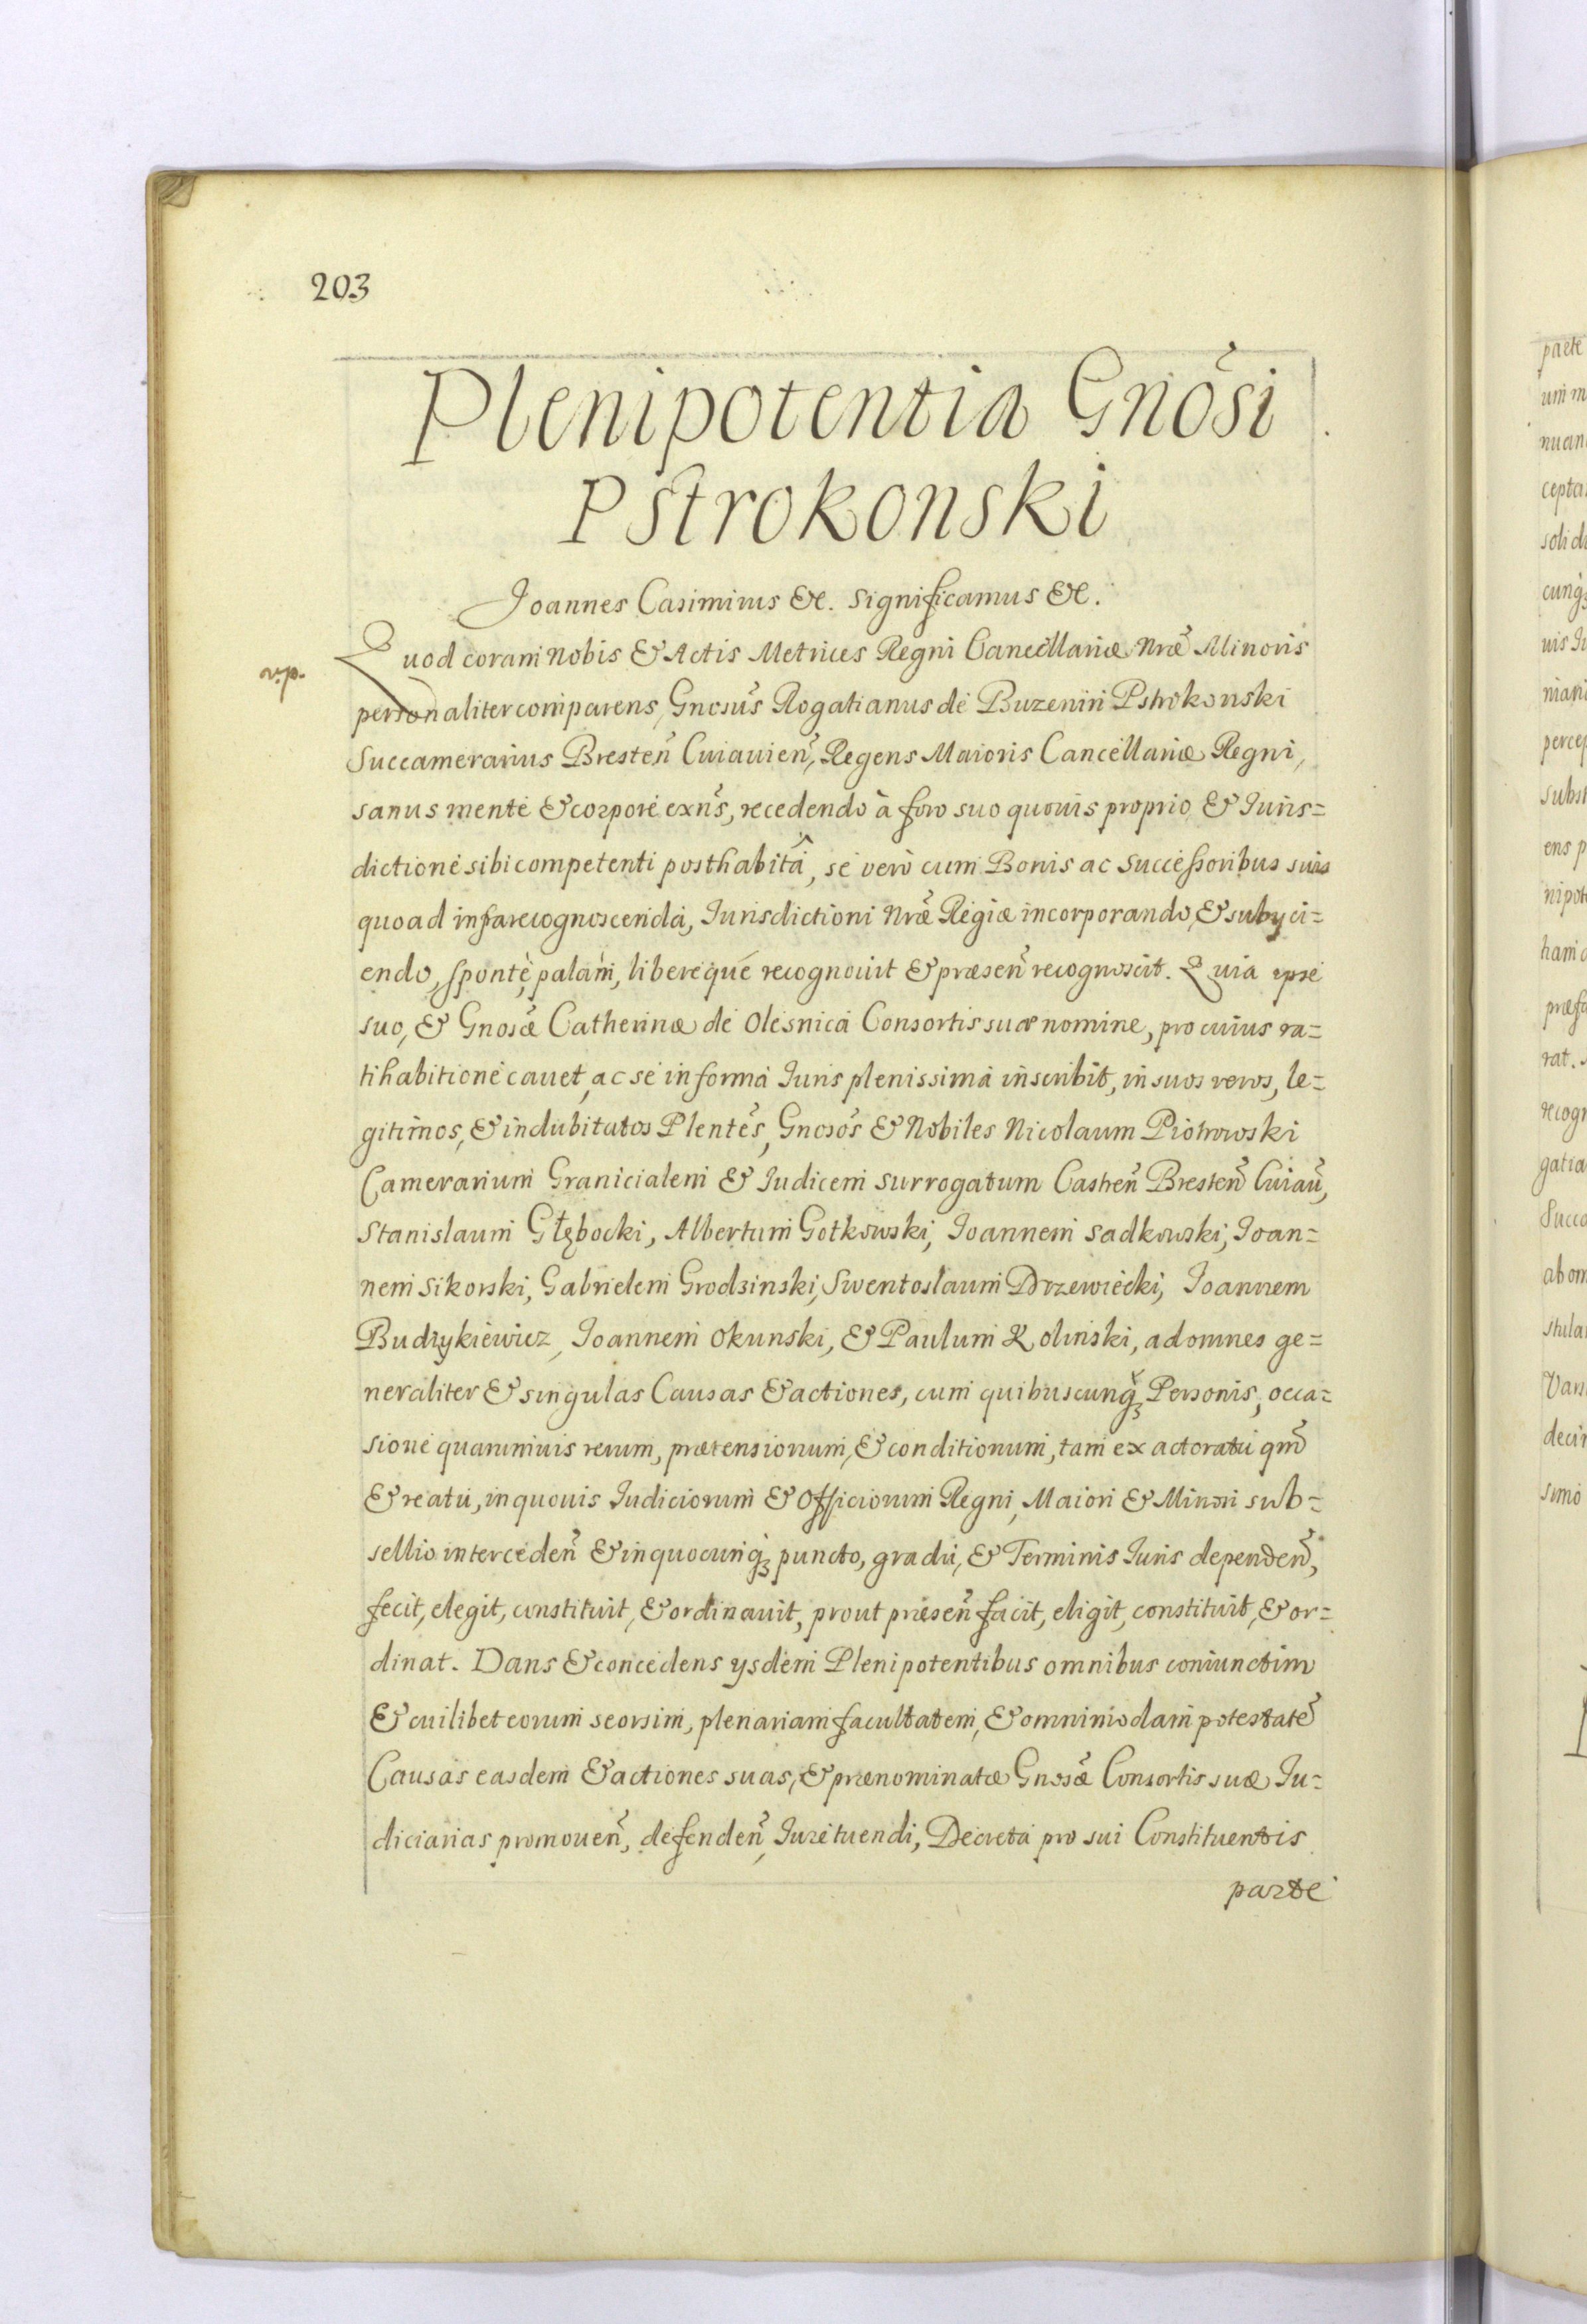 203
Plenipotentia Gnosi
Pstrokonski
Joannes Casimirus &c. significamus &c.
Quod coram nobis & Actis Metrices Regni Cancellariæ nræ Minoris
personaliter comparens, Gnosus Rogatianus de Buzenin Pstrokonski
Succamerarius Bresten Cuiauien, Regens Maioris Cancellariæ Regni,
sanus mente & corpore exns, recedendo à foro suo quouis proprio & Juris=
dictione sibi competenti posthabitâ, se verò cum Bonis ac successoribus suis
quoad infarecognoscenda, Jurisdictioni nræ Regiæ incorporando, & subyci=
endo, spontè, palàm, libereque recognouit & præsen recognoscit. Quia ipse
suo, & Gnosæ Catherinæ de Olesnica Consortis suæ nomine, pro cuius ra=
tihabitione cauet, ac se in forma Juris plenissima inscribit, in suos veros, le=
gitimos, & indubitatos Plentes, Gnosos & Nobiles Nicolaum Piotrowski
Camerarium Granicialem & Judicem surrogatum Castren Bresten Cuiau,
Stanislaum Głębocki, Albertum Gotkowski, Joannem Sadkowski, Joan=
nem Sikorski, Gabrielem Grodzinski, Swentoslaum Drzewiecki, Joannem
Budzykiewicz, Joannem Okunski, & Paulum Kolinski, ad omnes ge=
neraliter & singulas Causas & actiones, cum quibuscunq Personis, occa=
sione quarumuis rerum, prætensionum, & conditionum, tam ex actoratu qm
& reatu, in quouis Judiciorum & Officiorum Regni, Maiori & Minori sub=
sellio interceden & in quocunq puncto, gradu, & Terminis Juris dependen,
fecit, elegit, constituit, & ordinauit, prout præsen facit, eligit, constituit, & or=
dinat. Dans & concedens ysdem Plenipotentibus omnibus coniunctim
& cuilibet eorum seorsim, plenariam facultatem, & omnimodam potestate
Causas easdem & actiones suas, & prænominatæ Gnosæ Consortis suæ Ju=
diciarias promouen, defenden, Jure tuendi, Decreta pro sui Constituentis
parte